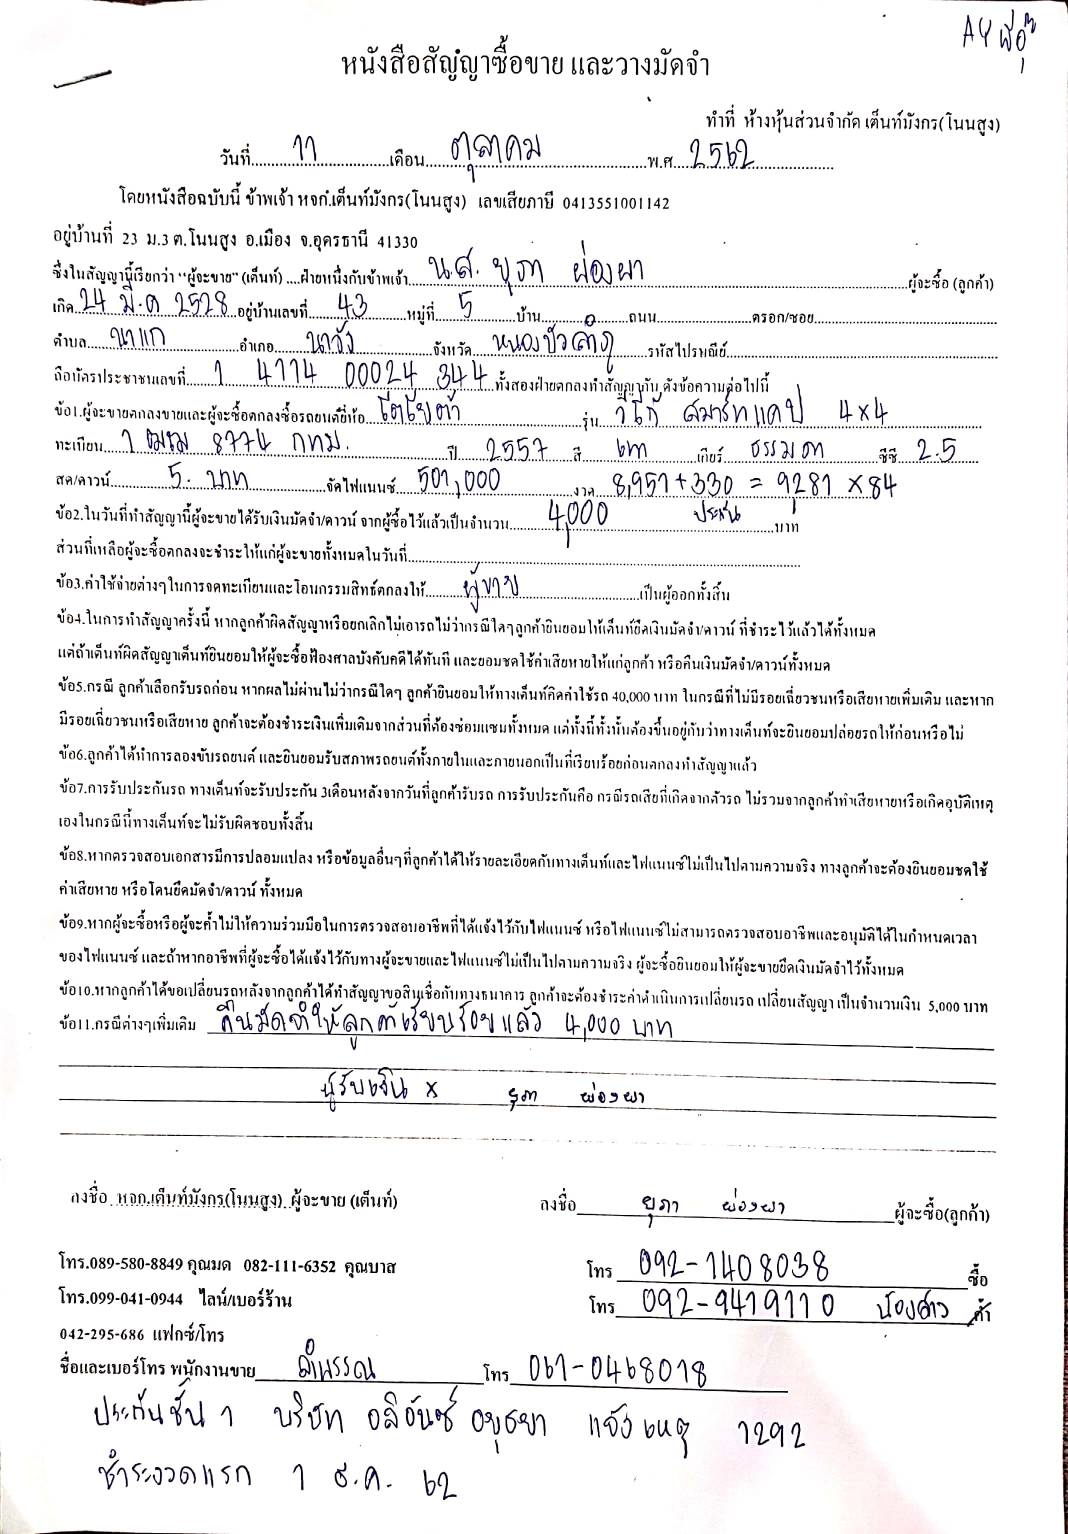 AY
หนังสือสัญญาซื้อขาย และวางมัดจำ
ทำที่ ห้างหุ้นส่วนจำกัด เต็นท์มังกร(โนนสูง)
วันที่ 11 เดือน ตุลาคม พ.ศ. 2562
โดยหนังสือฉบับนี้ ข้าพเจ้า หจก.เต็นท์มังกร(โนนสูง) เลขเสียภาษี 0413551001142
อยู่บ้านที่ 23 ม.3 ต.โนนสูง อ.เมือง จ.อุดรธานี 41330
ซึ่งในสัญญานี้เรียกว่า "ผู้จะขาย" (เต็นท์) ....ฝ่ายหนึ่งกับข้าพเจ้า น.ส. ยุภา ผ่องผา ผู้จะซื้อ (ลูกค้า)
เกิด 24 มี.ค 2528 อยู่บ้านเลขที่ 43 หมู่ที่ 5 บ้าน ถนน ตรอก/ซอย
ตำบล นาแก อำเภอ นาวัง จังหวัด หนองบัวลำภู รหัสไปรษณีย์
ถือบัตรประชาชนเลขที่ 1 4114 00024 344 ทั้งสองฝ่ายตกลงทำสัญญากัน ดังข้อความต่อไปนี้
ข้อ1.ผู้จะขายตกลงขายและผู้จะซื้อตกลงซื้อรถยนต์ยี่ห้อ โตโยต้า รุ่น วีโก้ สมาร์ทแคป 4x4
ทะเบียน 1 ฒฒ 8774 กทม. ปี 2557 สี เทา เกียร์ ธรรมดา ซีซี 2.5
สด/ดาวน์ 5. บาท จัดไฟแนนซ์ 501,000 งวด 8,951+330 = 9,281 x84
ข้อ2.ในวันที่ทำสัญญานี้ผู้จะขายได้รับเงินมัดจำ/ดาวน์ จากผู้ซื้อไว้แล้วเป็นจำนวน 4,000 บาท ประกัน
ส่วนที่เหลือผู้จะซื้อตกลงจะชำระให้แก่ผู้จะขายทั้งหมดในวันที่
ข้อ3.ค่าใช้จ่ายต่างๆในการจดทะเบียนและโอนกรรมสิทธ์ตกลงให้ ผู้ขาย เป็นผู้ออกทั้งสิ้น
ข้อ4.ในการทำสัญญาครั้งนี้ หากลูกค้าผิดสัญญาหรือยกเลิกไม่เอารถไม่ว่ากรณีใดๆลูกค้ายินยอมให้เต็นท์ยึดเงินมัดจำ/ดาวน์ ที่ชำระไว้แล้วได้ทั้งหมด
แต่ถ้าเต็นท์ผิดสัญญาเต็นท์ยินยอมให้ผู้จะซื้อฟ้องศาลบังคับคดีได้ทันที และยอมชดใช้ค่าเสียหายให้แก่ลูกค้า หรือคืนเงินมัดจำ/ดาวน์ทั้งหมด
ข้อ5.กรณี ลูกค้าเลือกรับรถก่อน หากผลไม่ผ่านไม่ว่ากรณีใดๆ ลูกค้ายินยอมให้ทางเต็นท์คิดค่าใช้รถ 40,000 บาท ในกรณีที่ไม่มีรอยเฉี่ยวชนหรือเสียหายเพิ่มเติม และหาก
มีรอยเฉี่ยวชนหรือเสียหาย ลูกค้าจะต้องชำระเงินเพิ่มเติมจากส่วนที่ต้องซ่อมแซมทั้งหมด แต่ทั้งนี้ทั้งนั้นต้องขึ้นอยู่กับว่าทางเต็นท์จะยินยอมปล่อยรถให้ก่อนหรือไม่
ข้อ6.ลูกค้าได้ทำการลองขับรถยนต์ และยินยอมรับสภาพรถยนต์ทั้งภายในและภายนอกเป็นที่เรียบร้อยก่อนตกลงทำสัญญาแล้ว
ข้อ7.การรับประกันรถ ทางเต็นท์จะรับประกัน 3เดือนหลังจากวันที่ลูกค้ารับรถ การรับประกันคือ กรณีรถเสียที่เกิดจากตัวรถ ไม่รวมจากลูกค้าทำเสียหายหรือเกิดอุบัติเหตุ
เองในกรณีนี้ทางเต็นท์จะไม่รับผิดชอบทั้งสิ้น
ข้อ8.หากตรวจสอบเอกสารมีการปลอมแปลง หรือข้อมูลอื่นๆที่ลูกค้าได้ให้รายละเอียดกับทางเต็นท์และไฟแนนซ์ไม่เป็นไปตามความจริง ทางลูกค้าจะต้องยินยอมชดใช้
ค่าเสียหาย หรือโดนยึดมัดจำ/ดาวน์ ทั้งหมด
ข้อ9.หากผู้จะซื้อหรือผู้จะค้ำไม่ให้ความร่วมมือในการตรวจสอบอาชีพที่ได้แจ้งไว้กับไฟแนนซ์ หรือไฟแนนซ์ไม่สามารถตรวจสอบอาชีพและอนุมัติได้ในกำหนดเวลา
ของไฟแนนซ์ และถ้าหากอาชีพที่ผู้จะซื้อได้แจ้งไว้กับทางผู้จะขายและไฟแนนซ์ไม่เป็นไปตามความจริง ผู้จะซื้อยินยอมให้ผู้จะขายยึดเงินมัดจำไว้ทั้งหมด
ข้อ10.หากลูกค้าได้ขอเปลี่ยนรถหลังจากลูกค้าได้ทำสัญญาขอสินเชื่อกับทางธนาคาร ลูกค้าจะต้องชำระค่าดำเนินการเปลี่ยนรถ เปลี่ยนสัญญา เป็นจำนวนเงิน 5,000 บาท
ข้อ11.กรณีต่างๆเพิ่มเติม คืนมัดจำให้ลูกค้าเรียบร้อยแล้ว 4,000 บาท
ผู้รับเงิน x ยุภา ผ่องผา
ลงชื่อ หจก.เต็นท์มังกร(โนนสูง) ผู้จะขาย (เต็นท์) ลงชื่อ ยุภา ผ่องผา ผู้จะซื้อ(ลูกค้า)
โทร.089-580-8849 คุณมด 082-111-6352 คุณบาส โทร 092-1408038 ซื้อ
โทร.099-041-0944 ไลน์/เบอร์ร้าน โทร 092-9419110 น้องสาว ค้ำ
042-295-686 แฟกซ์/โทร
ชื่อและเบอร์โทร พนักงานขาย ลำพรรณ โทร 061-0468018
ประกันชั้น 1 บริษัท อลิอันซ์ อยุธยา แจ้งเหตุ 1292
ชำระงวดแรก 1 ธ.ค. 62